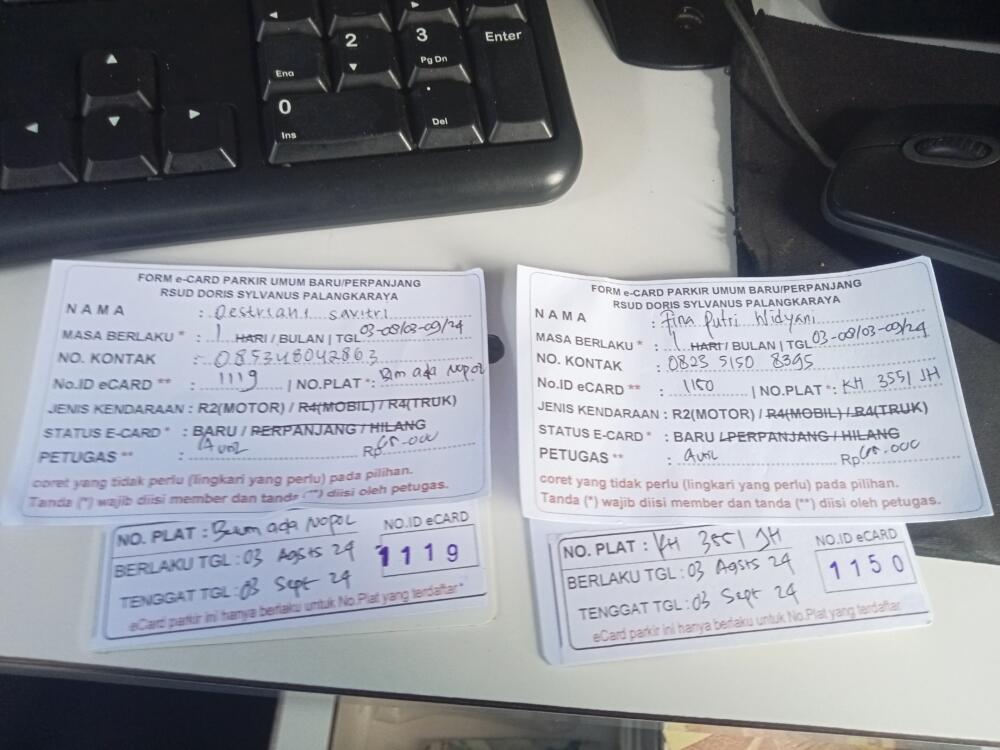 2
3
Pg Dn
Enter
End
0
Ins
.
Del
FORM e-CARD PARKIR UMUM BARU/PERPANJANG
RSUD DORIS SYLVANUS PALANGKARAYA
NAMA : Destriani Savitri
MASA BERLAKU * : 1 HARI / BULAN | TGL 03-08/03-09/24
NO. KONTAK : 085348042863
No.ID eCARD ** : 1119 | NO.PLAT *: Blm ada Nopol
JENIS KENDARAAN : R2(MOTOR) / R4(MOBIL) / R4(TRUK)
STATUS E-CARD * : BARU / PERPANJANG / HILANG
PETUGAS ** : Rp 65.000
coret yang tidak perlu (lingkari yang perlu) pada pilihan.
Tanda (*) wajib diisi member dan tanda (**) diisi oleh petugas.
NO. PLAT : Belum ada Nopol
BERLAKU TGL : 03 Agsts 24
TENGGAT TGL : 03 Sept 24
NO.ID eCARD
1119
eCard parkir ini hanya berlaku untuk No.Plat yang terdaftar*
FORM e-CARD PARKIR UMUM BARU/PERPANJANG
RSUD DORIS SYLVANUS PALANGKARAYA
NAMA : Pina Putri Widyani
MASA BERLAKU * : 1 HARI / BULAN | TGL 03-08/03-09/24
NO. KONTAK : 0823 5150 8395
No.ID eCARD ** : 1150 | NO.PLAT *: KH 3551 JH
JENIS KENDARAAN : R2(MOTOR) / R4(MOBIL) / R4(TRUK)
STATUS E-CARD * : BARU / PERPANJANG / HILANG
PETUGAS ** : Rp 65.000
coret yang tidak perlu (lingkari yang perlu) pada pilihan.
Tanda (*) wajib diisi member dan tanda (**) diisi oleh petugas.
NO. PLAT : KH 3551 JH
BERLAKU TGL : 03 Agsts 24
TENGGAT TGL : 03 Sept 24
NO.ID eCARD
1150
eCard parkir ini hanya berlaku untuk No.Plat yang terdaftar*